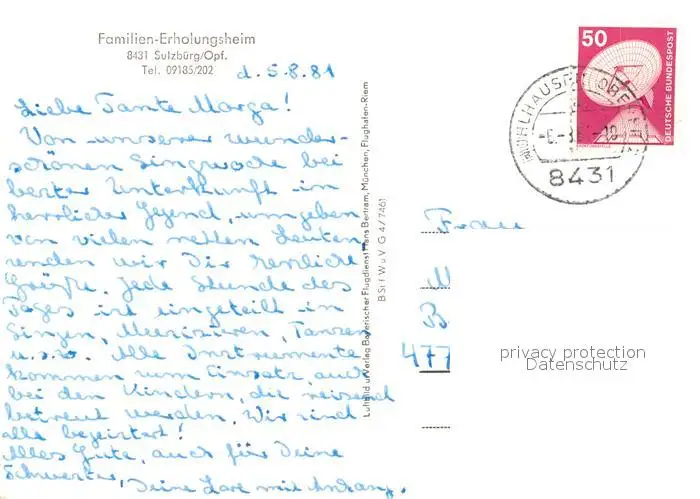 Familien-Erholungsheim
8431 Sulzbürg/Opf.
Tel. 09185/202
d. 5.8.81
Liebe Tante Marga!
Von unserer wunder-
schönen Singwoche bei
bester Unterkunft in
herrlicher Gegend, umgeben
von vielen netten Leuten,
senden wir Dir herzliche
Grüße. Jede Stunde des
Tages ist eingeteilt in
Singen, Musizieren, Tanzen
u.s.w. Alle Instrumente
kommen zum Einsatz, auch
bei den Kindern, die reizend
betreut werden. Wir sind
alle begeistert!
Alles Gute, auch für Deine
Schwester, Deine Lore mit Anhang.
Luftbild u. Verlag Bayerischer Flugdienst Hans Bertram, München, Flughafen-Riem
B St f W u V G 4/7461
50
DEUTSCHE BUNDESPOST
MÜHLHAUSEN
8431
Frau
M
B
477
privacy protection
Datenschutz